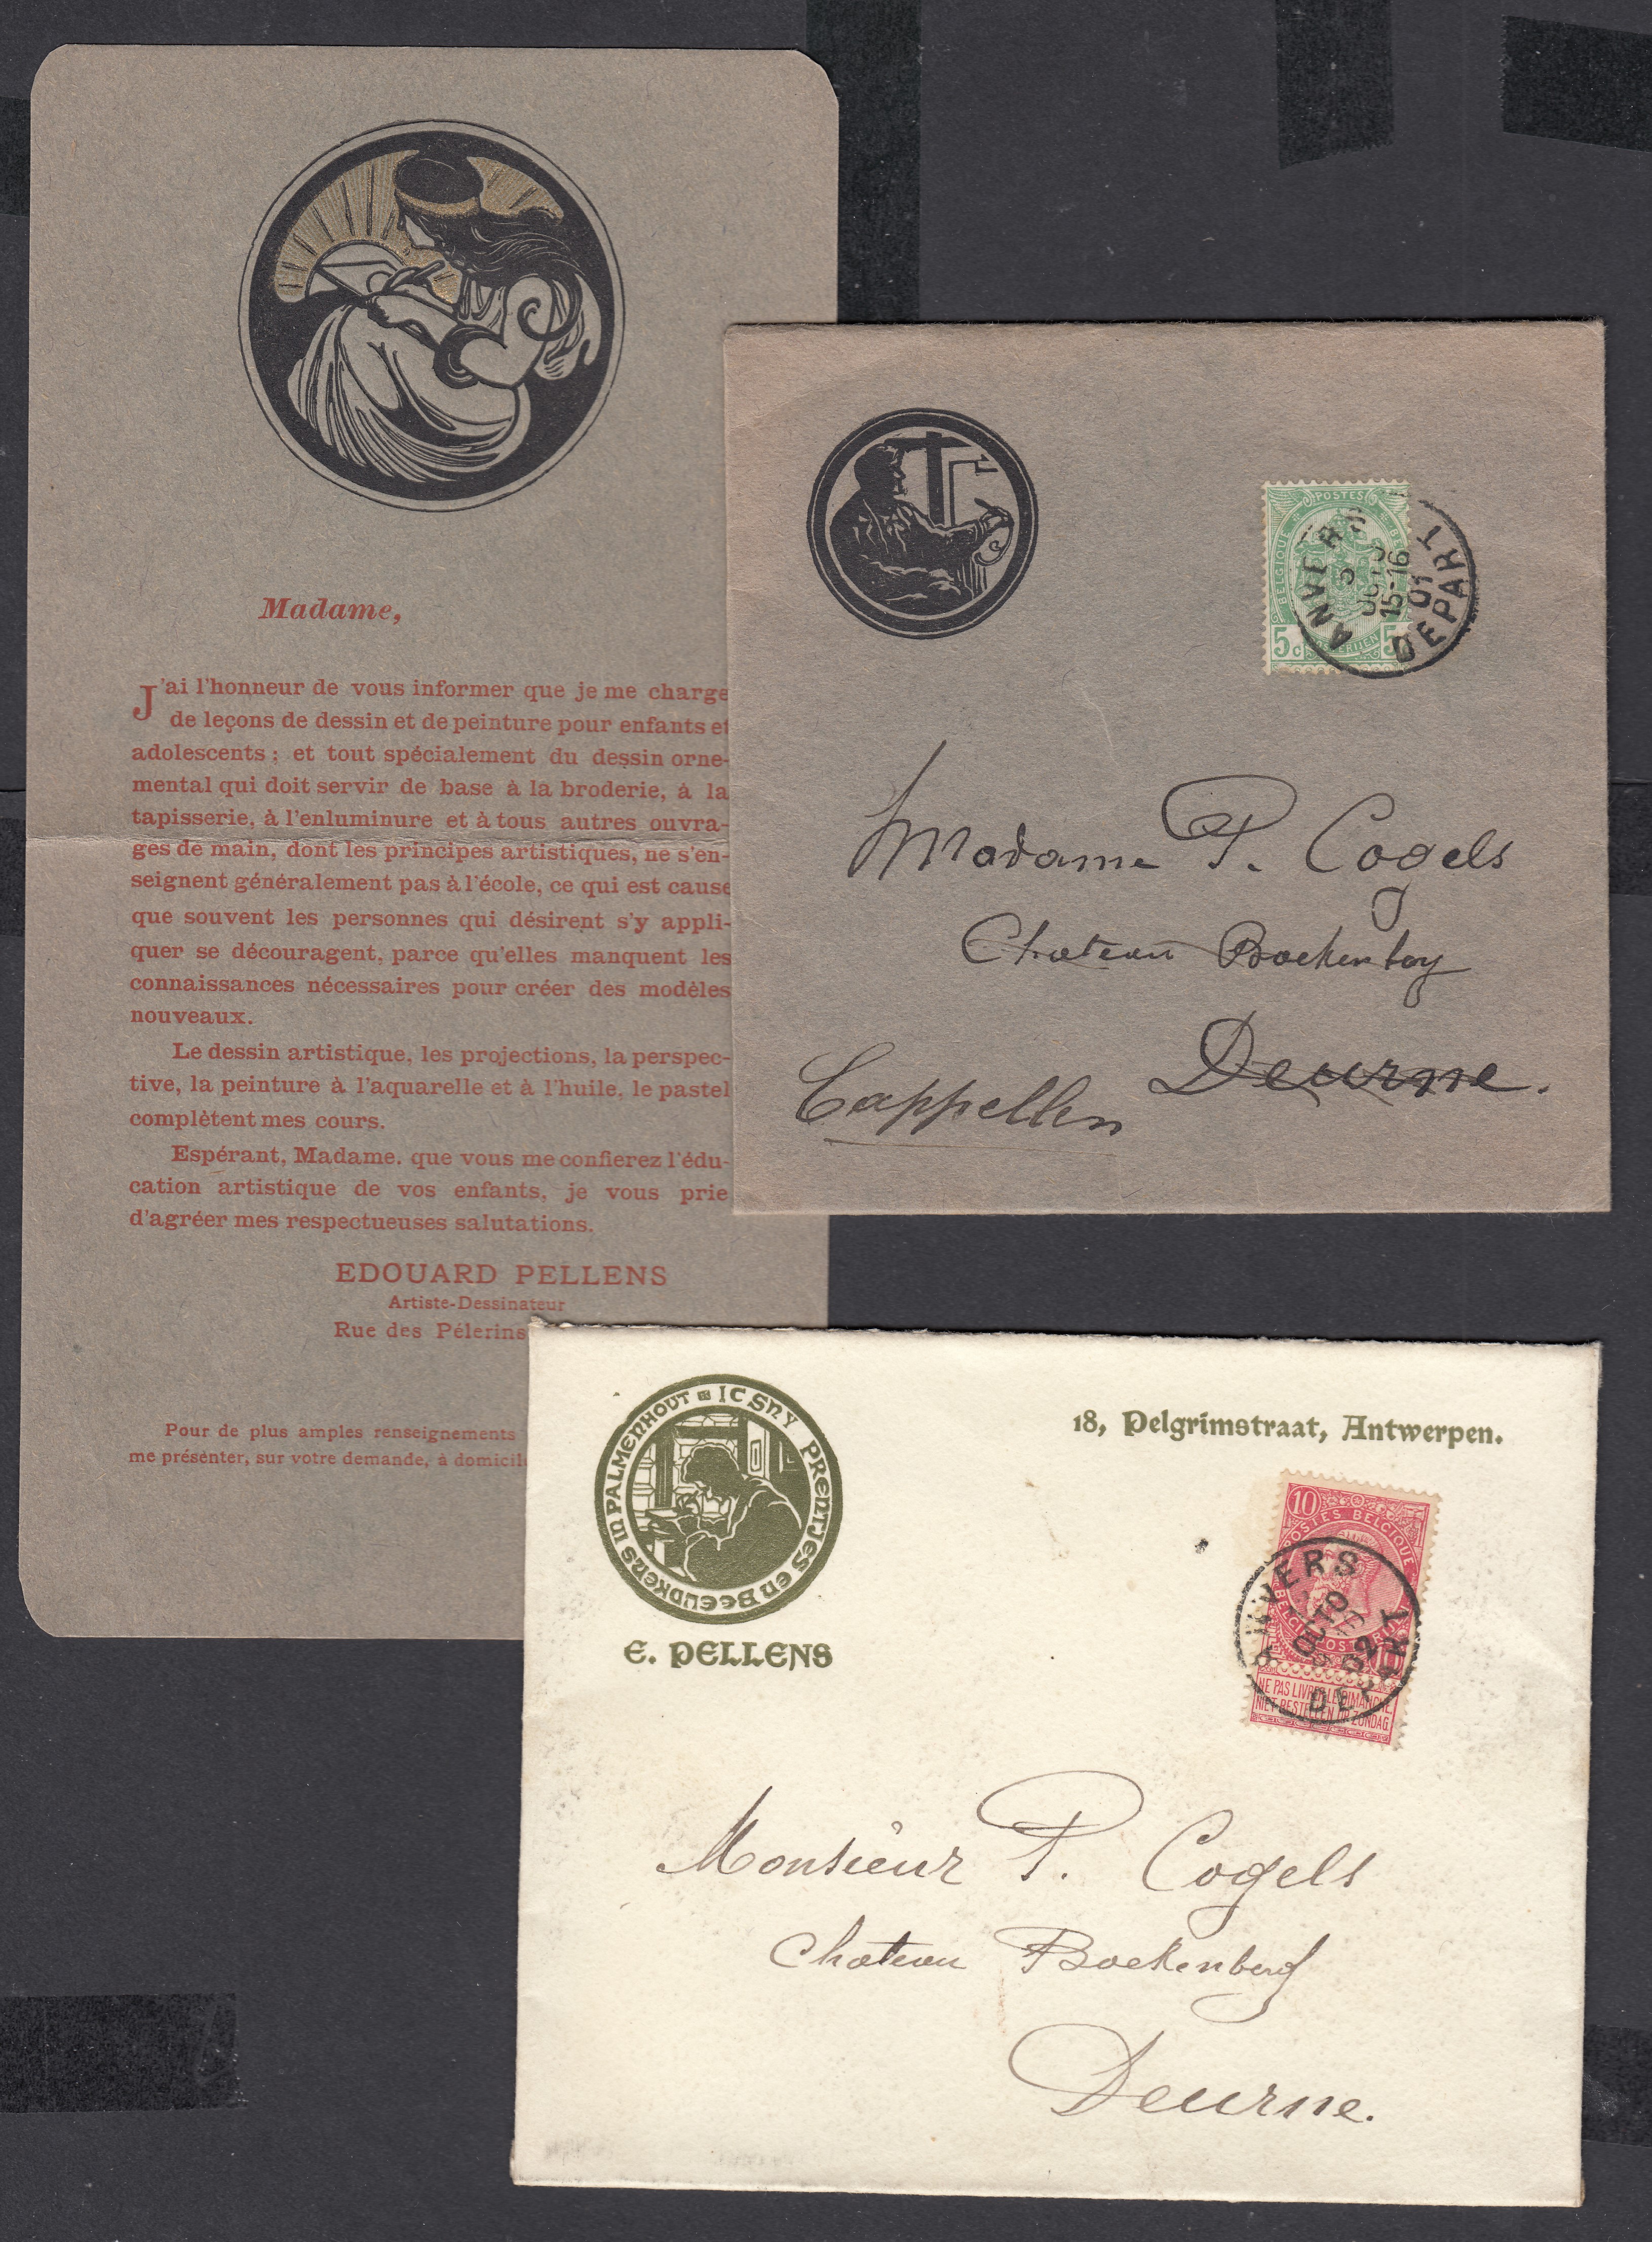 Madame,
J'ai l'honneur de vous informer que je me charge
de leçons de dessin et de peinture pour enfants et
adolescents ; et tout spécialement du dessin orne-
mental qui doit servir de base à la broderie, à la
tapisserie, à l'enluminure et à tous autres ouvra-
ges de main, dont les principes artistiques, ne s'en-
seignent généralement pas à l'école, ce qui est cause
que souvent les personnes qui désirent s'y appli-
quer se découragent, parce qu'elles manquent les
connaissances nécessaires pour créer des modèles
nouveaux.
Le dessin artistique, les projections, la perspec-
tive, la peinture à l'aquarelle et à l'huile, le pastel
complètent mes cours.
Espérant, Madame, que vous me confierez l'édu-
cation artistique de vos enfants, je vous prie
d'agréer mes respectueuses salutations.
EDOUARD PELLENS
Artiste-Dessinateur
Rue des Pélerins
Pour de plus amples renseignements
me présenter, sur votre demande, à domicile
POSTES
BELGIQUE
5c 5
ANVERS
15-16
01
DEPART
Madame P. Cogels
Chateau Boekenberg
Deurne.
Cappellen
IC SNY PRENTJES EN BEELDKENS IN PALMENHOUT
E. PELLENS
18, Pelgrimstraat, Antwerpen.
10
POSTES BELGIQUE
10
NE PAS LIVRER LE DIMANCHE
NIET BESTELLEN OP ZONDAG
ANVERS
OCTO
02
DEPART
Monsieur P. Cogels
Chateau Boekenberg
Deurne.